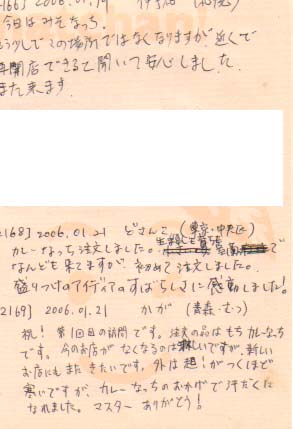 166] 2006.01.19
今日は みそなっち。
もう少しでこの場所ではなくなりますが、近くで
再開店できると聞いて安心しました。
また来ます。
2168] 2006.01.21 どさんこ (東京・中央区)
カレーなっち注文しました。
なんども来てますが、初めて注文しました。
盛りつけのアイディアのすばらしさに感動しました!
2169] 2006.01.21 かが (青森・むつ)
祝! 第1回目の訪問です。注文の品はもちカレーなっち
です。今のお店がなくなるのは淋しいですが、新しい
お店にもまたきたいです。外は超!がつくほど
寒いですが、カレーなっちのおかげで汗だくに
なれました。マスターありがとう!